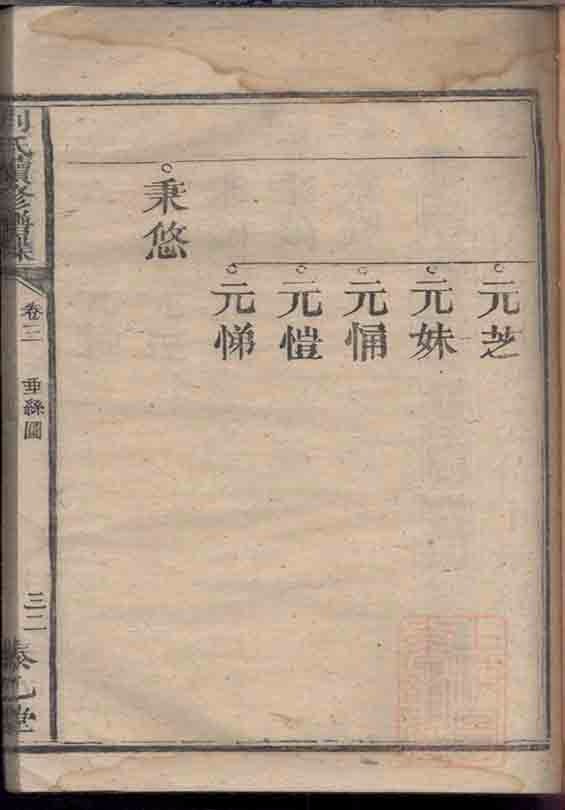 元芝
元妹
元悀
元愷
元悌
秉悠
氏續修譜牒
卷三
垂絲圖
三二
堂